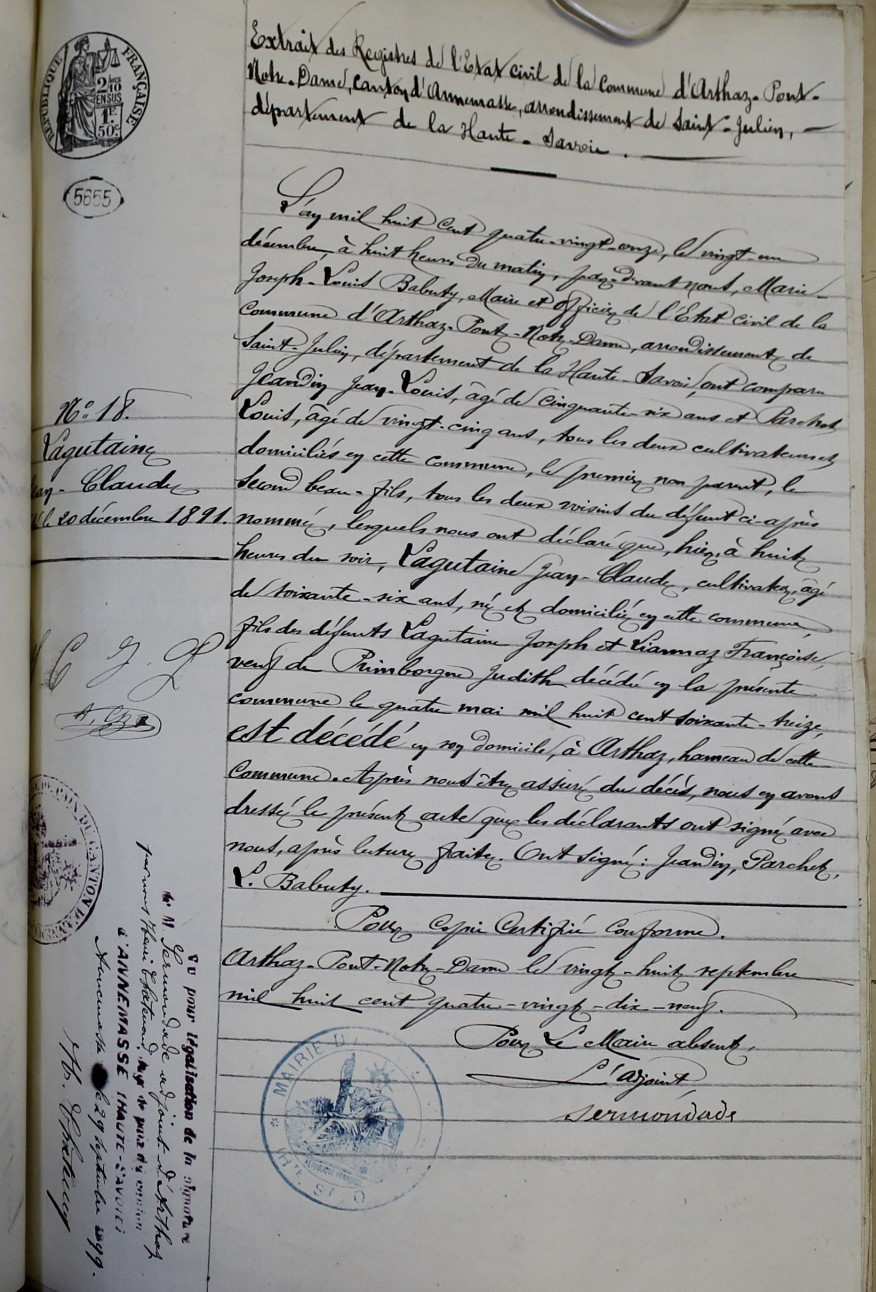 Extrait des Registres de l'Etat civil de la Commune d'Arthaz-Pont-
Notre-Dame, canton d'Annemasse, arrondissement de Saint-Julien,
département de la Haute-Savoie.
RÉPUBLIQUE FRANÇAISE
2/10
EN SUS
1F
50c
5655
L'an mil huit cent quatre-vingt-onze, le vingt-un
décembre, à huit heures du matin, par-devant nous, Marie-
Joseph-Louis Babuty, Maire et officier de l'Etat civil de la
Commune d'Arthaz-Pont-Notre-Dame, arrondissement de
Saint-Julien, département de la Haute-Savoie, ont comparu
Jeandin Jean-Louis, âgé de cinquante-six ans et Parchet
Louis, âgé de vingt-cinq ans, tous les deux cultivateurs et
domiciliés en cette commune, le premier non parent, le
second beau-fils, tous les deux voisins du défunt ci-après
nommé, lesquels nous ont déclaré que, hier, à huit
heures du soir, Lagutaine Jean-Claude, cultivateur, âgé
de soixante-six ans, né et domicilié en cette commune,
fils des défunts Lagutaine Joseph et Liannaz Françoise,
veuf de Primborgne Judith décédée en la présente
commune le quatre mai mil huit cent soixante-treize,
est décédé en son domicile, à Arthaz, hameau de cette
commune. Après nous être assuré du décès, nous en avons
dressé le présent acte que les déclarants ont signé avec
nous, après lecture faite. Ont signé: Jeandin, Parchet,
L. Babuty.
N° 18.
Lagutaine
Jean-Claude
le 20 décembre 1891.
Pour copie Certifiée conforme.
Arthaz-Pont-Notre-Dame le vingt-huit septembre
mil huit cent quatre-vingt-dix-neuf.
Pour Le Maire absent,
L'adjoint
Sermondade
MAIRIE D
Vu pour légalisation de la signature
de M Sermondade adjoint d'Arthaz
par nous Henri juge de paix du canton
d'ANNEMASSE (HAUTE-SAVOIE)
Annemasse le 29 septembre 1899.